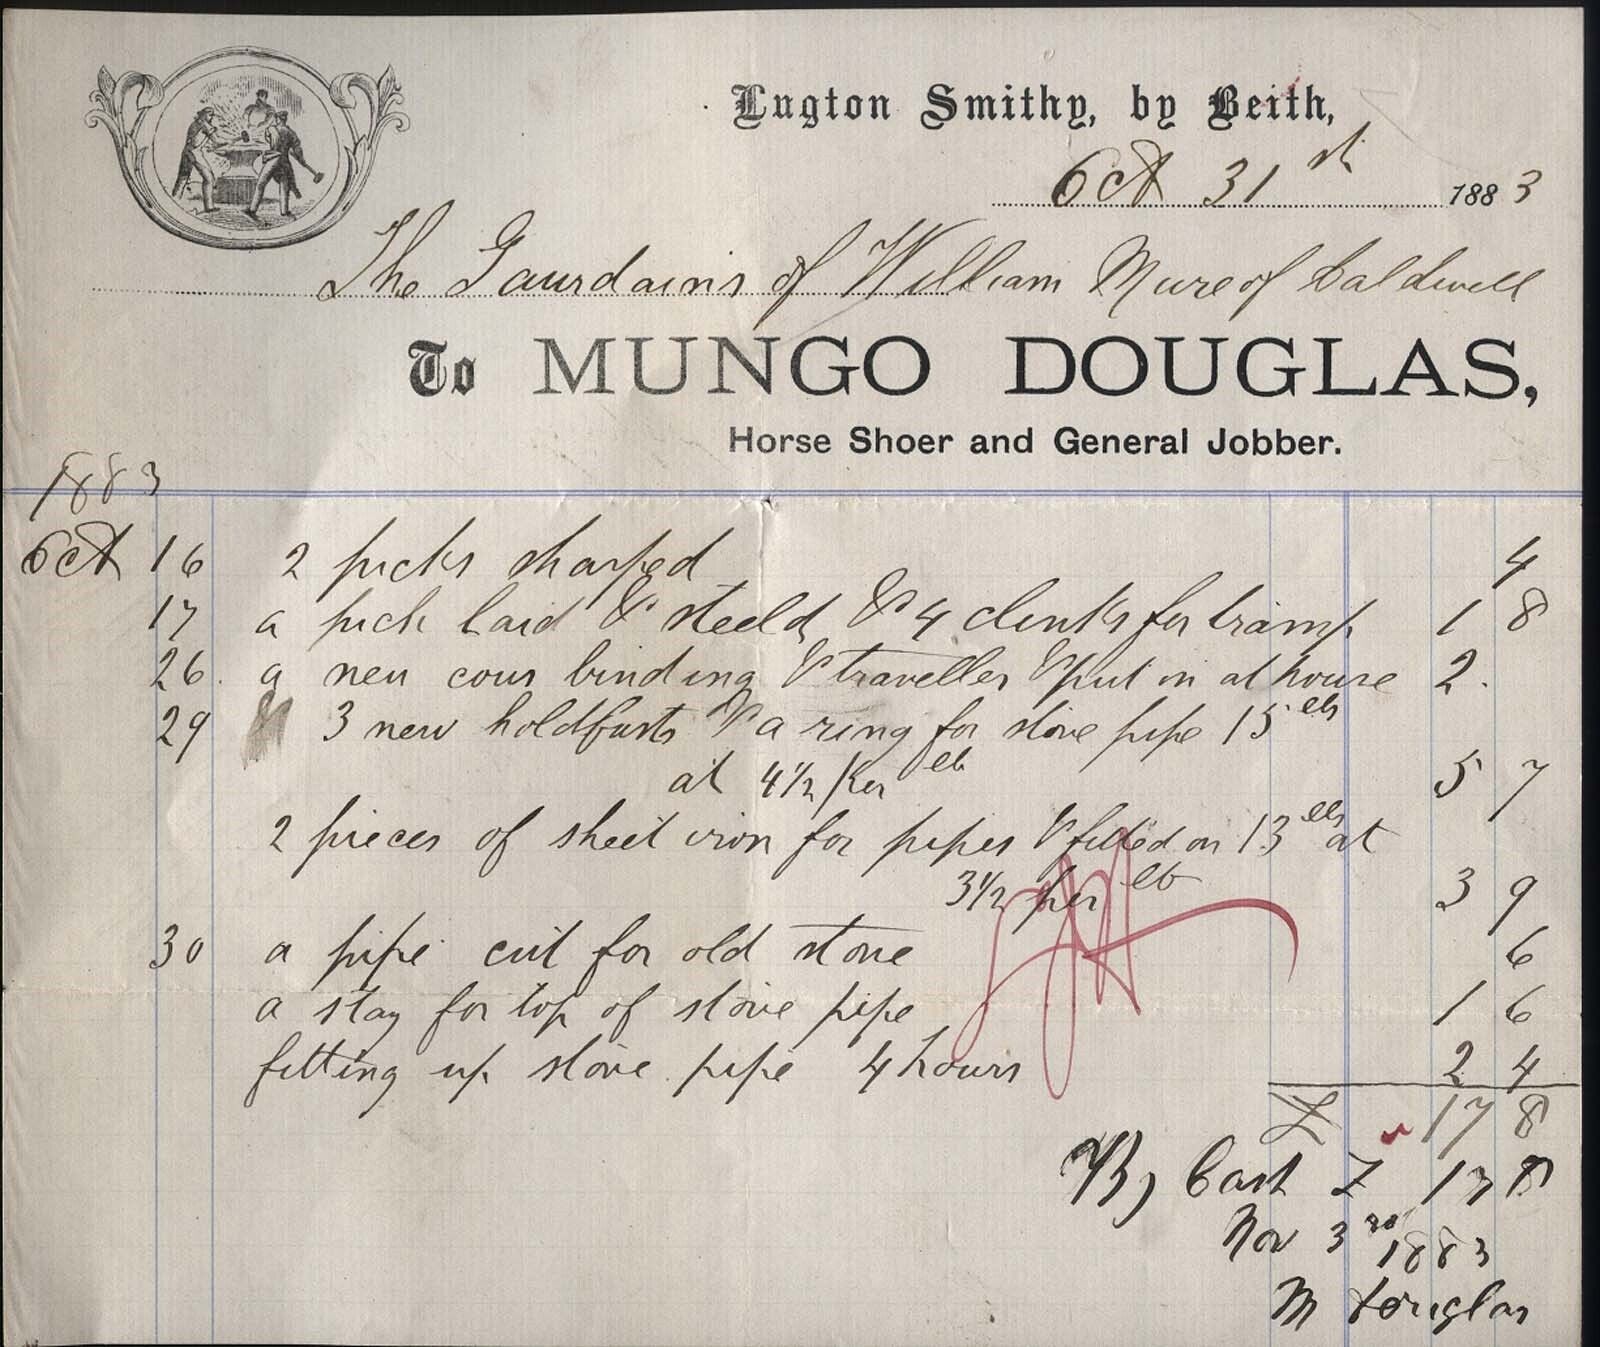 Lugton Smithy, by Beith,
Oct 31st 1883
The Gaurdains of William Mure of Caldwell
To MUNGO DOUGLAS,
Horse Shoer and General Jobber.
1883
Oct 16 2 picks sharped 4
17 a pick laid & steeld & 4 clinks for tramp 1 8
26 a new cour binding & traveller & put in at house 2.
29 3 new holdfasts & a ring for stove pipe 15 lbs
at 4½ per lb 5 7
2 pieces of sheet iron for pipes & fitted on 13 lbs at
3½ per lb 3 9
30 a pipe cut for old stove 6
a stay for top of stove pipe 1 6
fitting up stove pipe 4 hours 2 4
£ 17 8
By Cash £ 17 8
Nov 3rd 1883
M Douglas